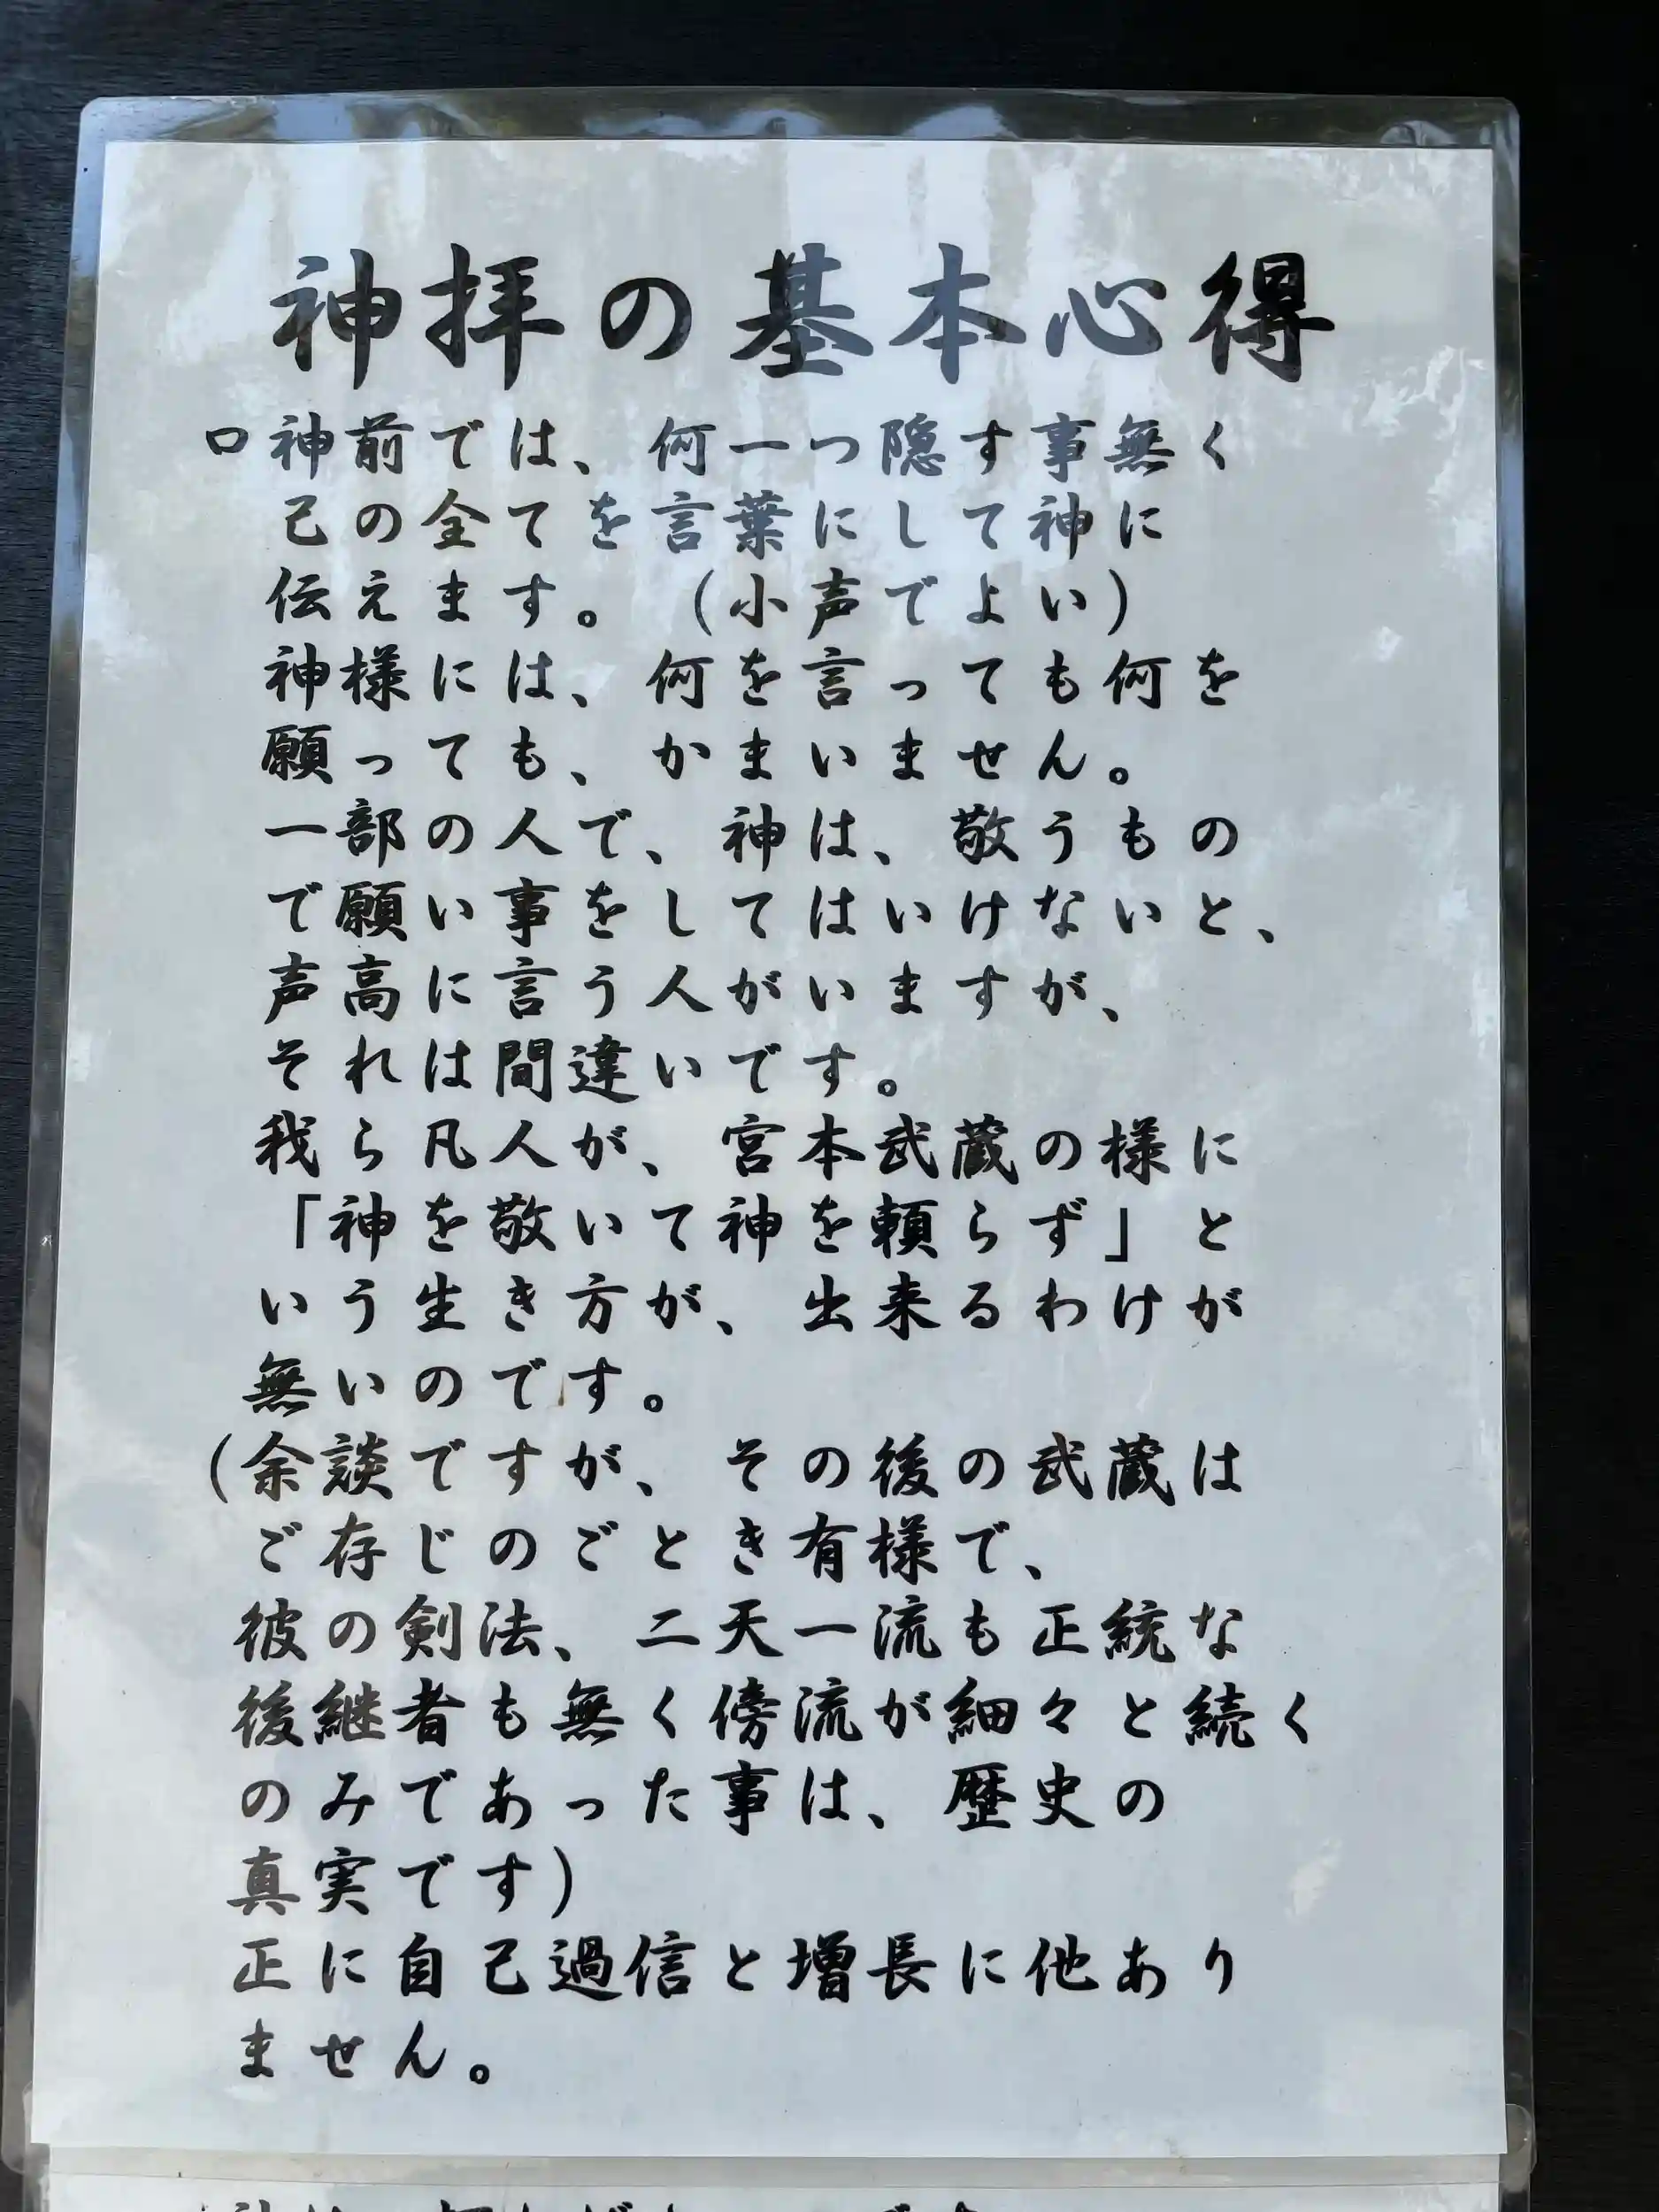 神拝の基本心得
口神前では、何一つ隠す事無く
己の全てを言葉にして神に
伝えます。（小声でよい）
神様には、何を言っても何を
願っても、かまいません。
一部の人で、神は、敬うもの
で願い事をしてはいけないと、
声高に言う人がいますが、
それは間違いです。
我ら凡人が、宮本武蔵の様に
「神を敬いて神を頼らず」と
いう生き方が、出来るわけが
無いのです。
（余談ですが、その後の武蔵は
ご存じのごとき有様で、
彼の剣法、二天一流も正統な
後継者も無く傍流が細々と続く
のみであった事は、歴史の
真実です）
正に自己過信と増長に他あり
ません。